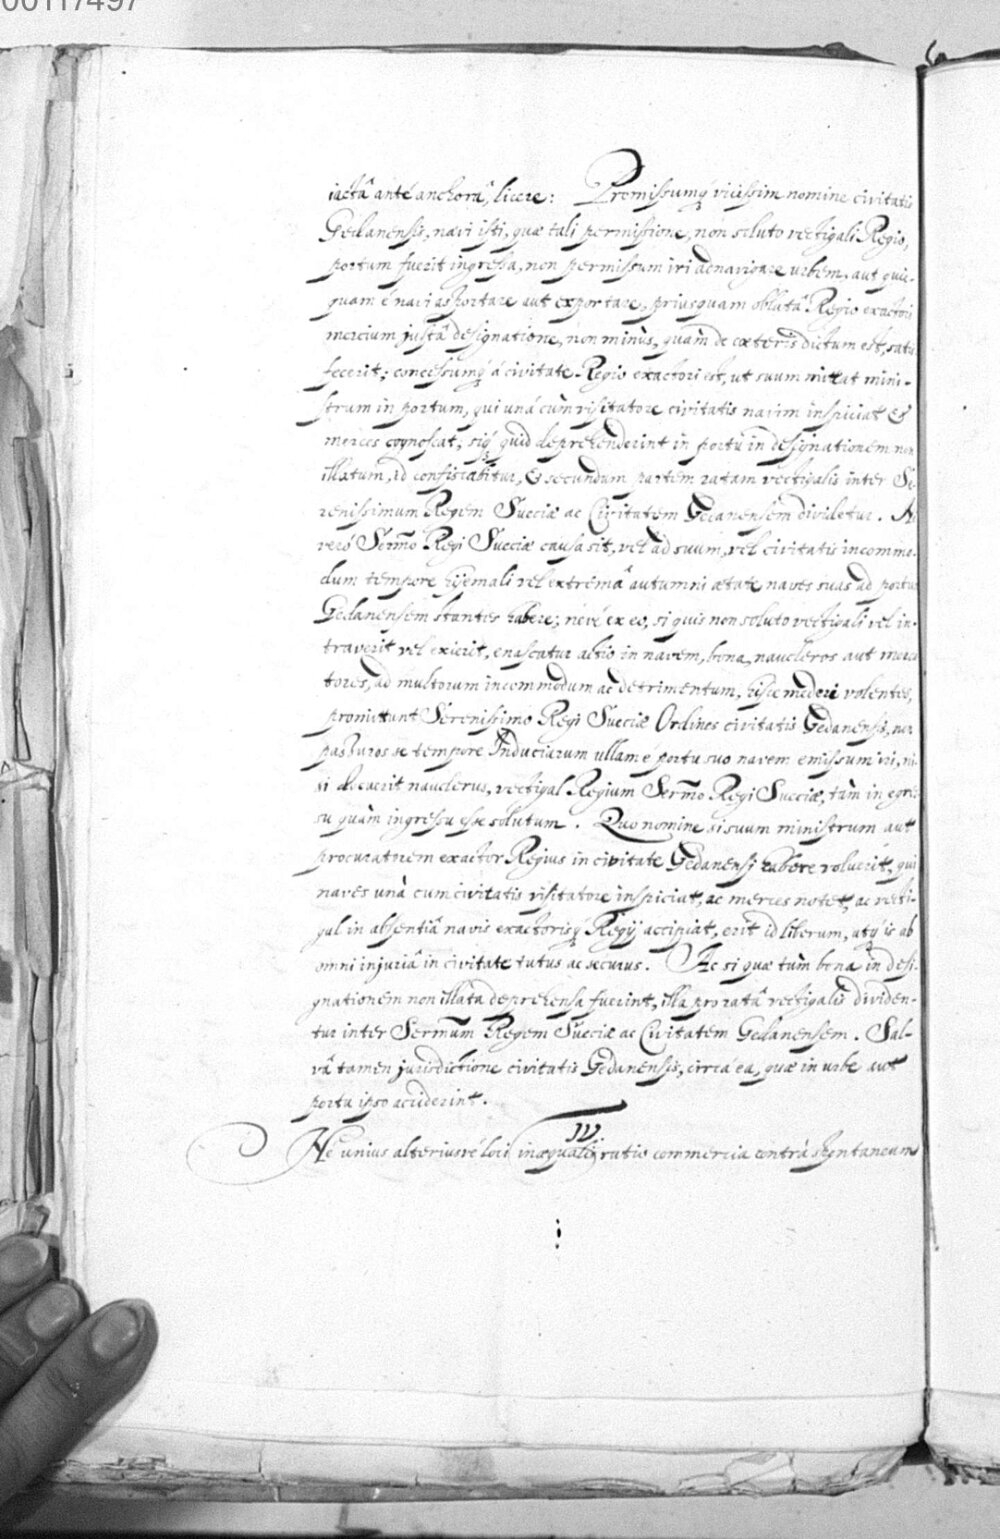 00117497
iactâ ante anchorâ, licere: Promissumq; vicissim nomine civitatis
Gedanensis, navi isti, quæ tali permissione, non soluto vectigali Regio,
portum fuerit ingressa, non permissum iri adnavigare urbem, aut quic-
quam è navi asportare aut exportare, priusquam oblatâ Regio exactori
mercium justâ designatione, non minùs, quàm de cæteris dictum est, satis
fecerit; concessumq; á civitate Regio exactori est, ut suum mittat mini-
strum in portum, qui unà cùm visitatore civitatis navim inspiciat &
merces cognoscat, siq; quid deprehenderint in portu in designationem non
illatum, id confiscabitur, & secundum partem ratam vectigalis inter Se-
renissimum Regem Sueciæ ac Civitatem Gedanensem dividetur. Ne
veró Sermo Regi Sueciæ causa sit, vel ad suum, vel civitatis incommo-
dum tempore hyemali vel extremâ autumni ætate naves suas ad portum
Gedanensem stantes habere; nevé ex eo, si quis non soluto vectigali vel in-
traverit vel exierit, enascatur actio in navem, bona, naucleros aut merca-
tores, ad multorum incommodum ac detrimentum, hisce mederi volentes,
promittunt Serenissimo Regi Sueciæ Ordines civitatis Gedanensis, non
passuros se tempore Induciarum ullam é portu suo navem emissum iri, ni-
si docuerit nauclerus, vectigal Regium Sermo Regi Sueciæ, tàm in egres-
su quàm ingressu esse solutum. Quo nomine si suum ministrum aut
procuratorem exactor Regius in civitate Gedanensi habere voluerit, qui
naves unà cum civitatis visitatore inspiciat, ac merces notet, ac vecti-
gal in absentiâ navis exactorisq; Regij accipiat, erit id liberum, atq; is ab
omni injuriâ in civitate tutus ac securus. Ac si quæ tùm bona in desi-
gnationem non illata deprehensa fuerint, illa pro ratâ vectigalis dividen-
tur inter Sermum Regem Sueciæ ac Civitatem Gedanensem. Sal-
vâ tamen jurisdictione civitatis Gedanensis, circà ea, quæ in urbe aut
portu ipso acciderint.
IV
Ne unius alteriusvé loci inæqualis ratio commercia contrà spontaneum